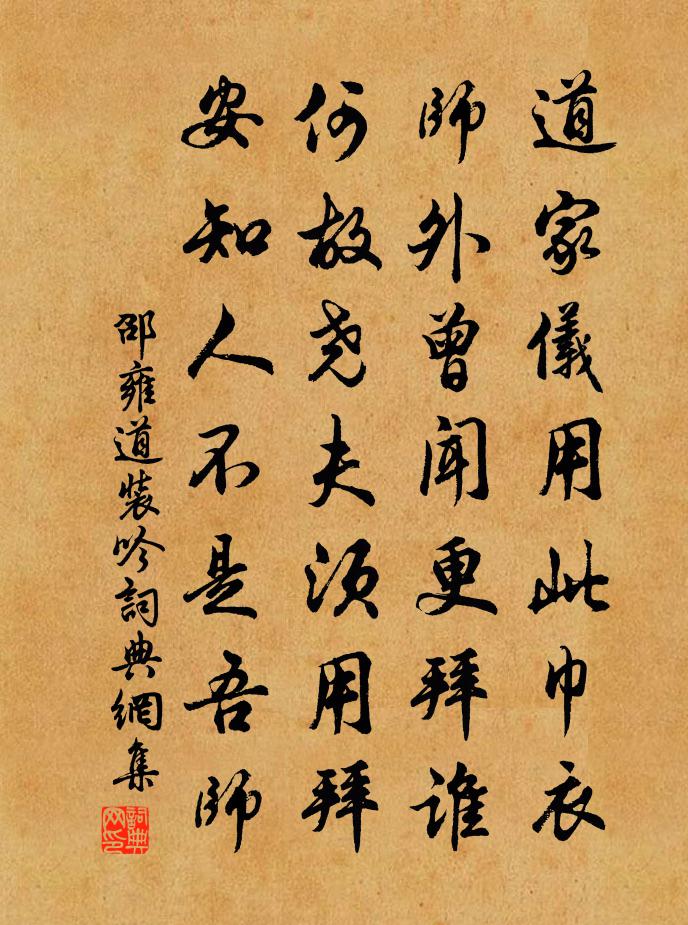 道家儀用此巾衣
師外曾聞更拜誰
何故堯夫須用拜
安知人不是吾師
邵雍道裝吟詞典網集
詞典网印